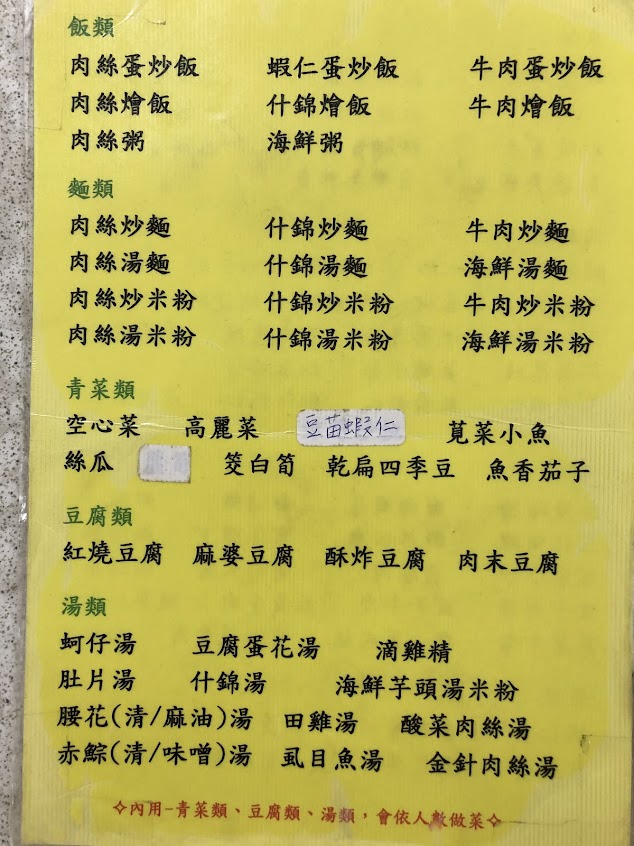 飯類
肉絲蛋炒飯 蝦仁蛋炒飯 牛肉蛋炒飯
肉絲燴飯 什錦燴飯 牛肉燴飯
肉絲粥 海鮮粥
麵類
肉絲炒麵 什錦炒麵 牛肉炒麵
肉絲湯麵 什錦湯麵 海鮮湯麵
肉絲炒米粉 什錦炒米粉 牛肉炒米粉
肉絲湯米粉 什錦湯米粉 海鮮湯米粉
青菜類
空心菜 高麗菜 豆苗蝦仁 莧菜小魚
絲瓜 筊白筍 乾扁四季豆 魚香茄子
豆腐類
紅燒豆腐 麻婆豆腐 酥炸豆腐 肉末豆腐
湯類
蚵仔湯 豆腐蛋花湯 滴雞精
肚片湯 什錦湯 海鮮芋頭湯米粉
腰花(清/麻油)湯 田雞湯 酸菜肉絲湯
赤鯮(清/味噌)湯 虱目魚湯 金針肉絲湯
✧內用-青菜類、豆腐類、湯類，會依人數做菜✧